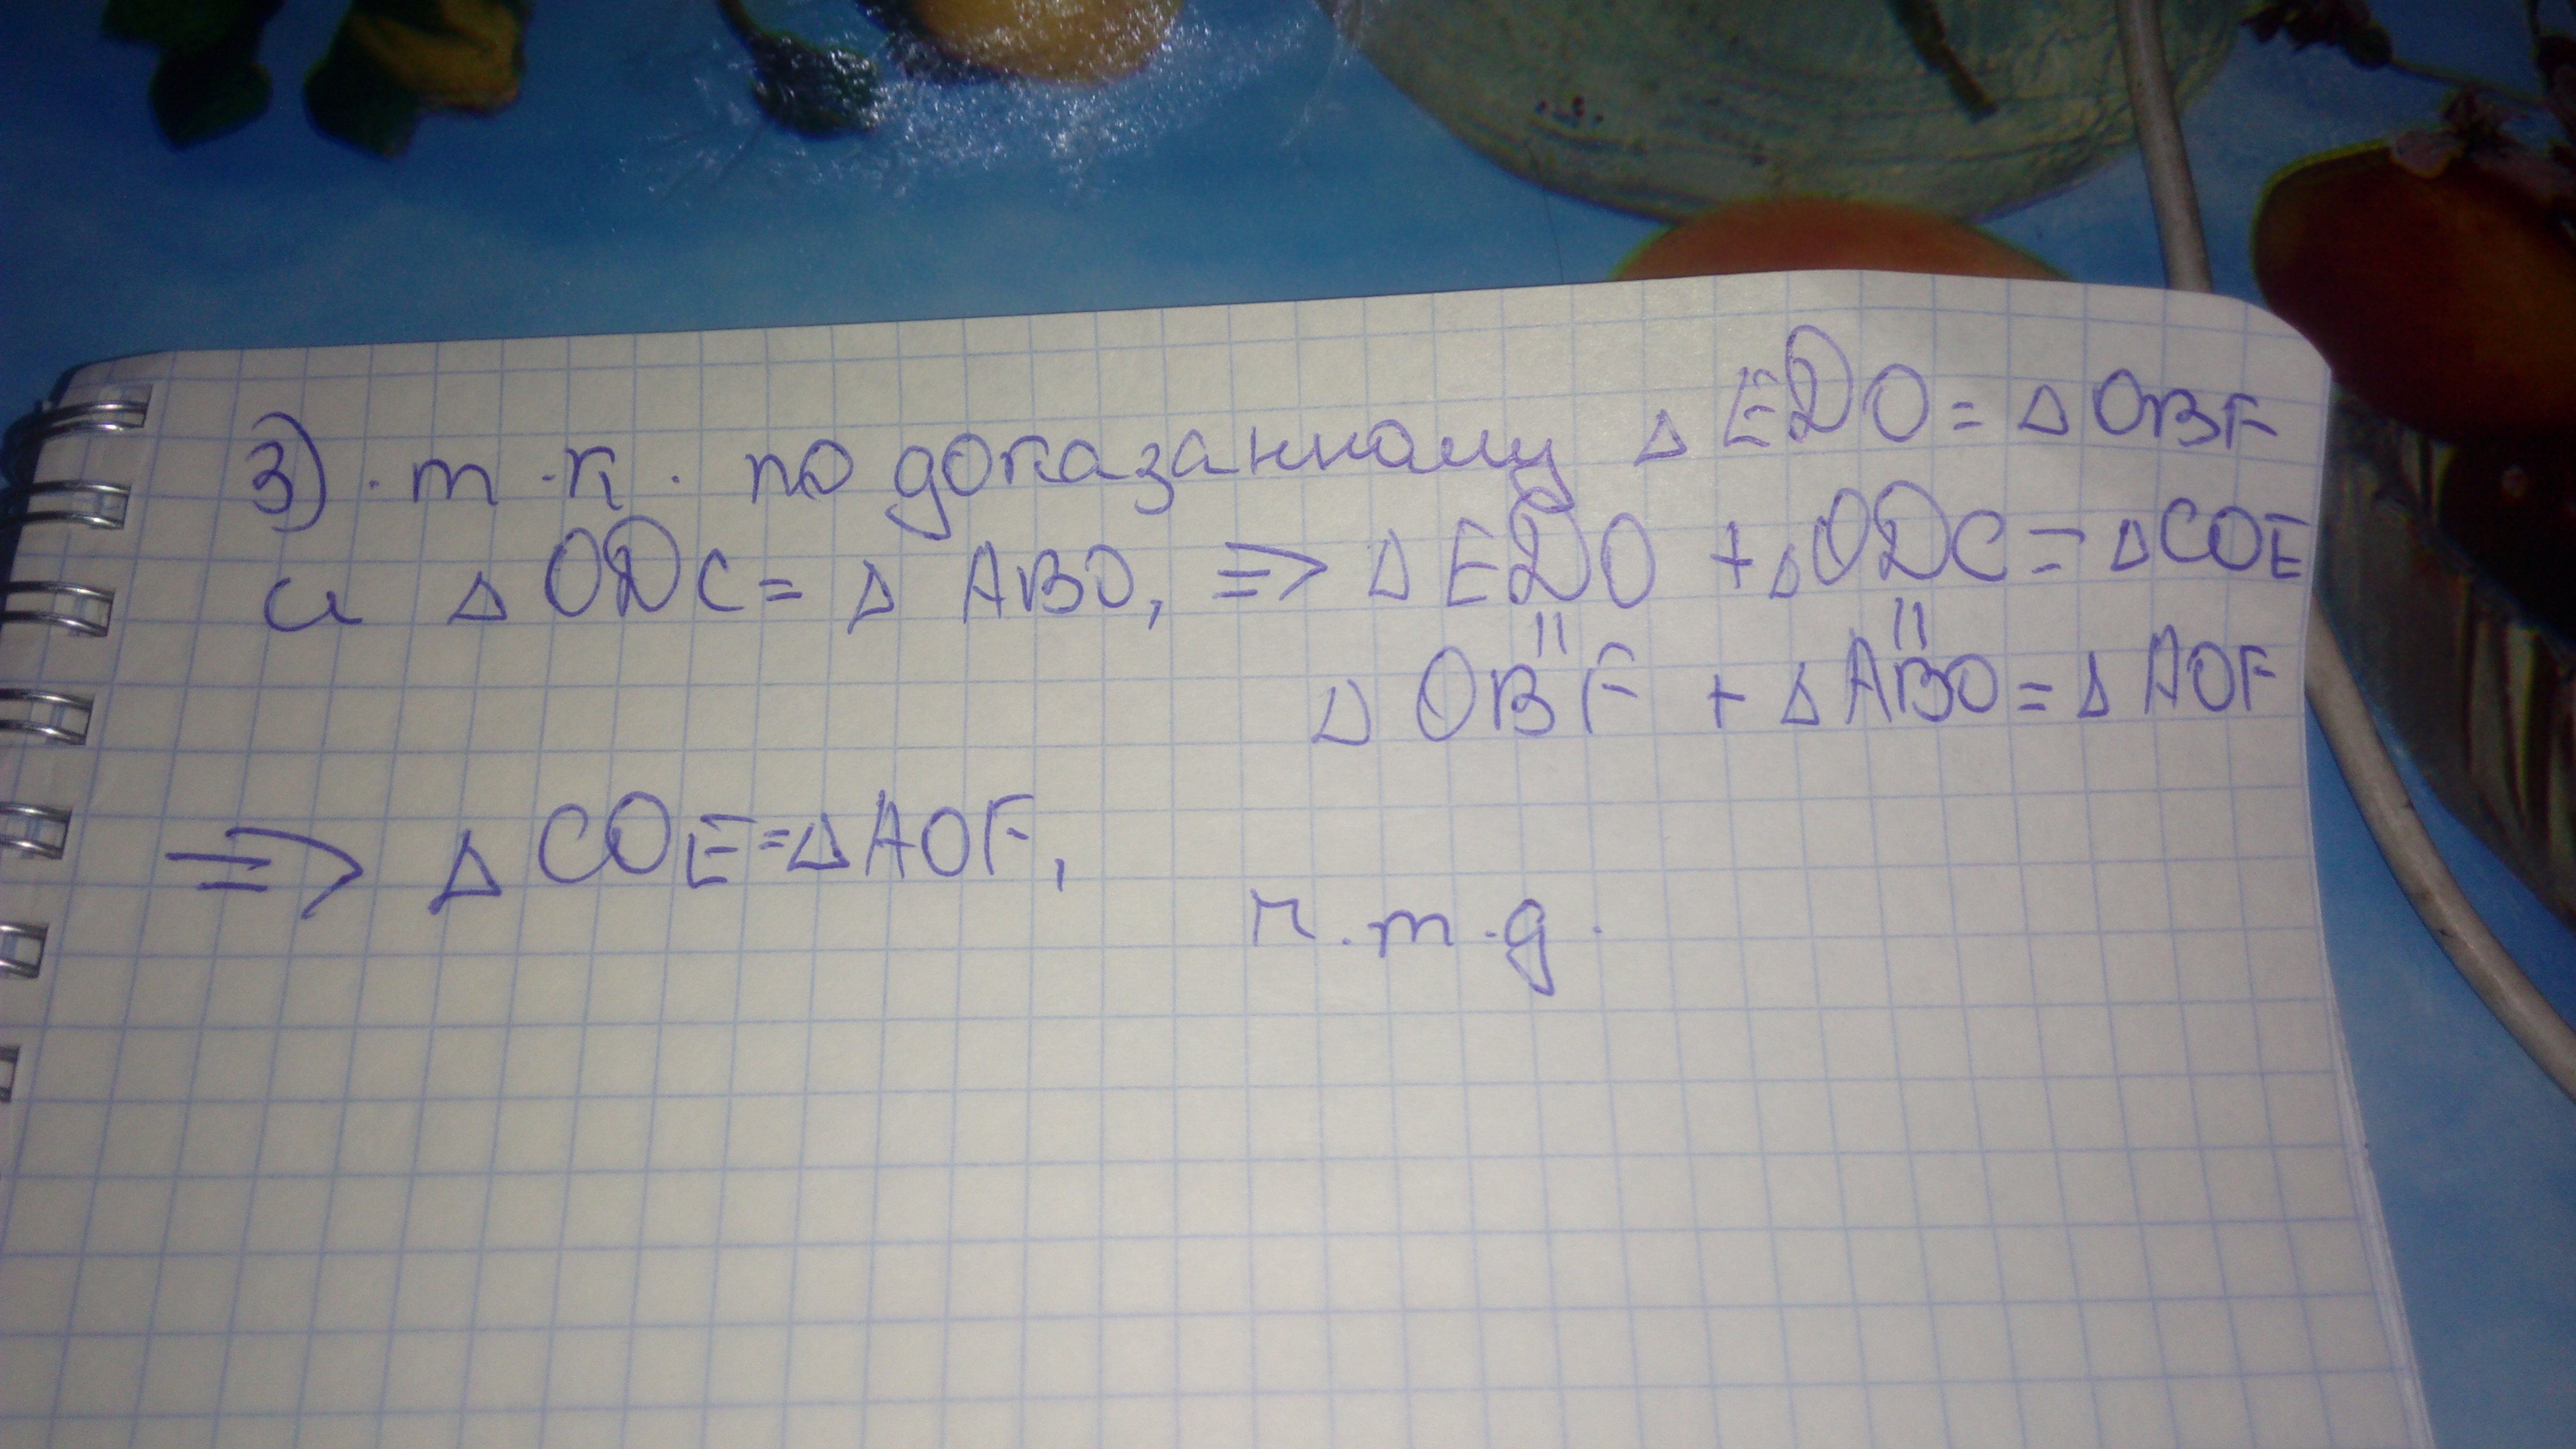 3). т.к. по доказанному △ EDO = △ OBF
и △ ODC = △ ABO, => △ EDO + △ ODC = △ COE
|| ||
△ OBF + △ ABO = △ AOF
=> △ COE = △ AOF,
ч.т.д.